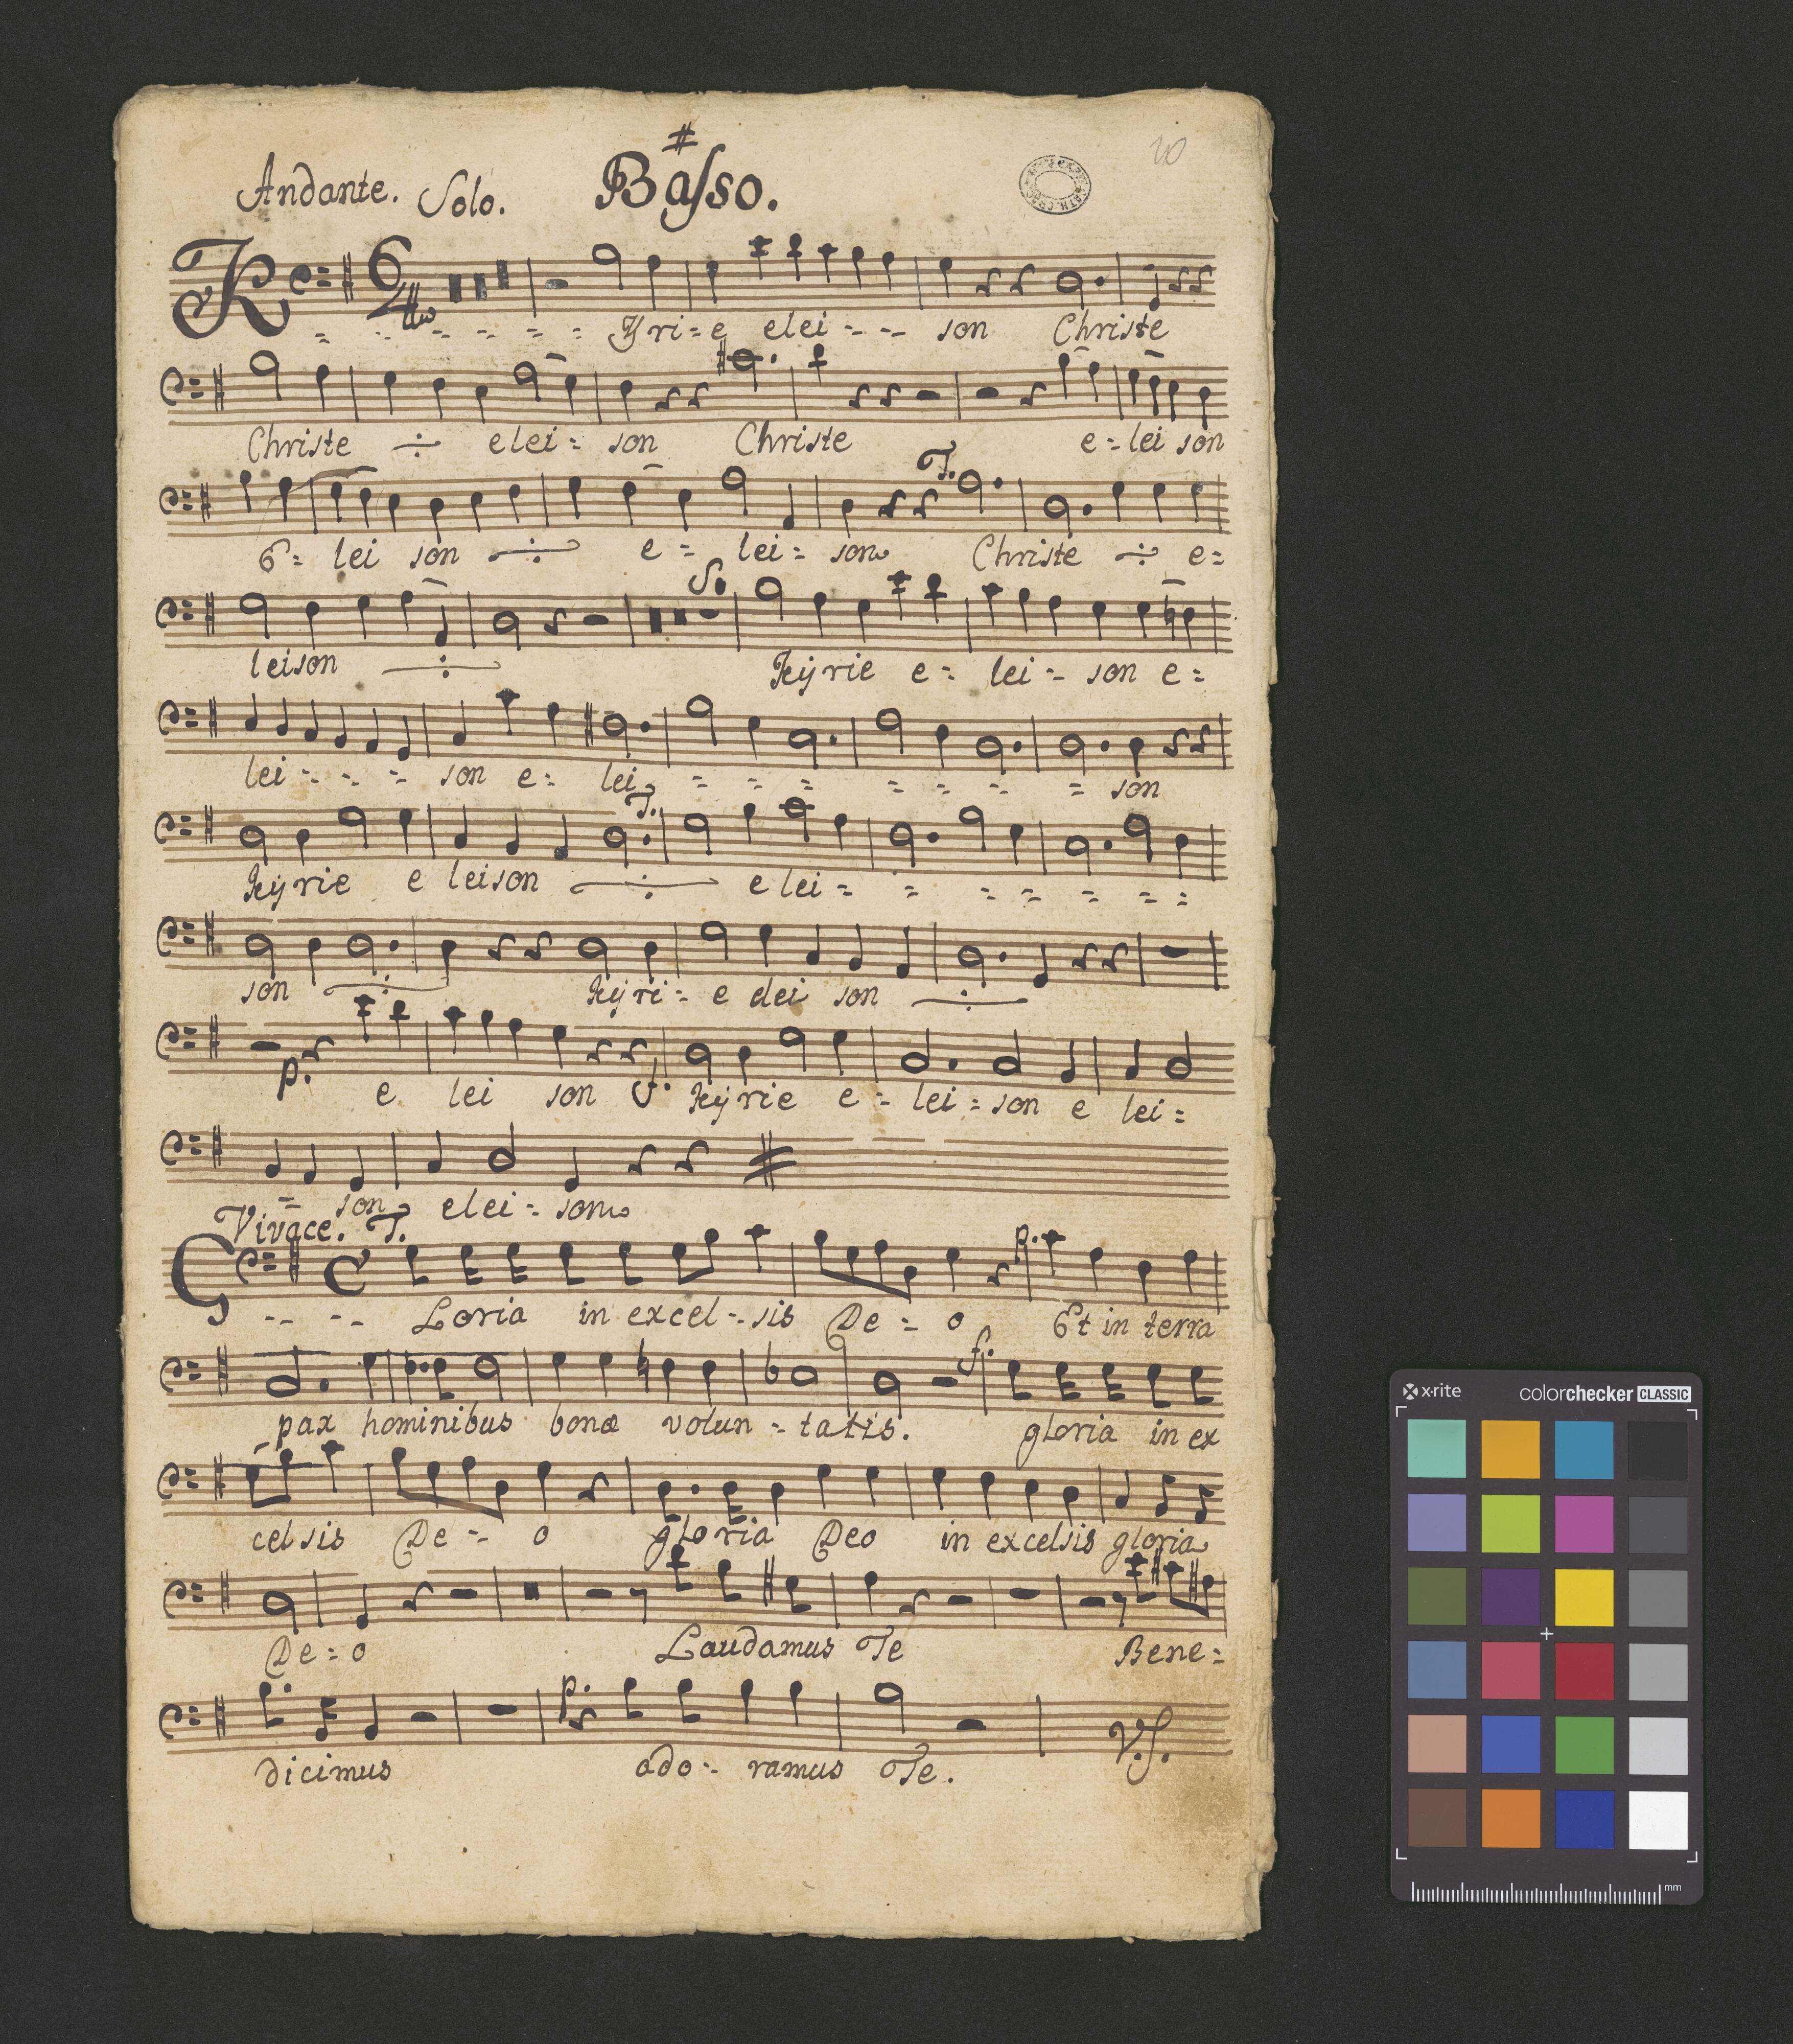 Andante. Solo. Baſso.
K - - - - - - Yri=e elei - - - son Christe
Christe elei= son Christe e=lei son
E= lei son e= lei= son Christe e=
T.
leison Kÿrie e= lei=son e=
S.
lei - - - son e= lei = = = = = = = son
Kÿrie e leison e lei= = = = = = =
T.
son Kÿri=e elei son
p. e lei son S. Kÿrie e= lei=son e lei=
= son elei=son
Vivace. T.
G - - - - Loria in excel=sis De= o Et in terra
p.
pax hominibus bonæ volun=tatis. gloria in ex
f.
celsis De= o gloria Deo in excelsis gloria
De=o Laudamus Te Bene=
dicimus ado=ramus Te.
p. V.S.
x-rite colorchecker CLASSIC
mm